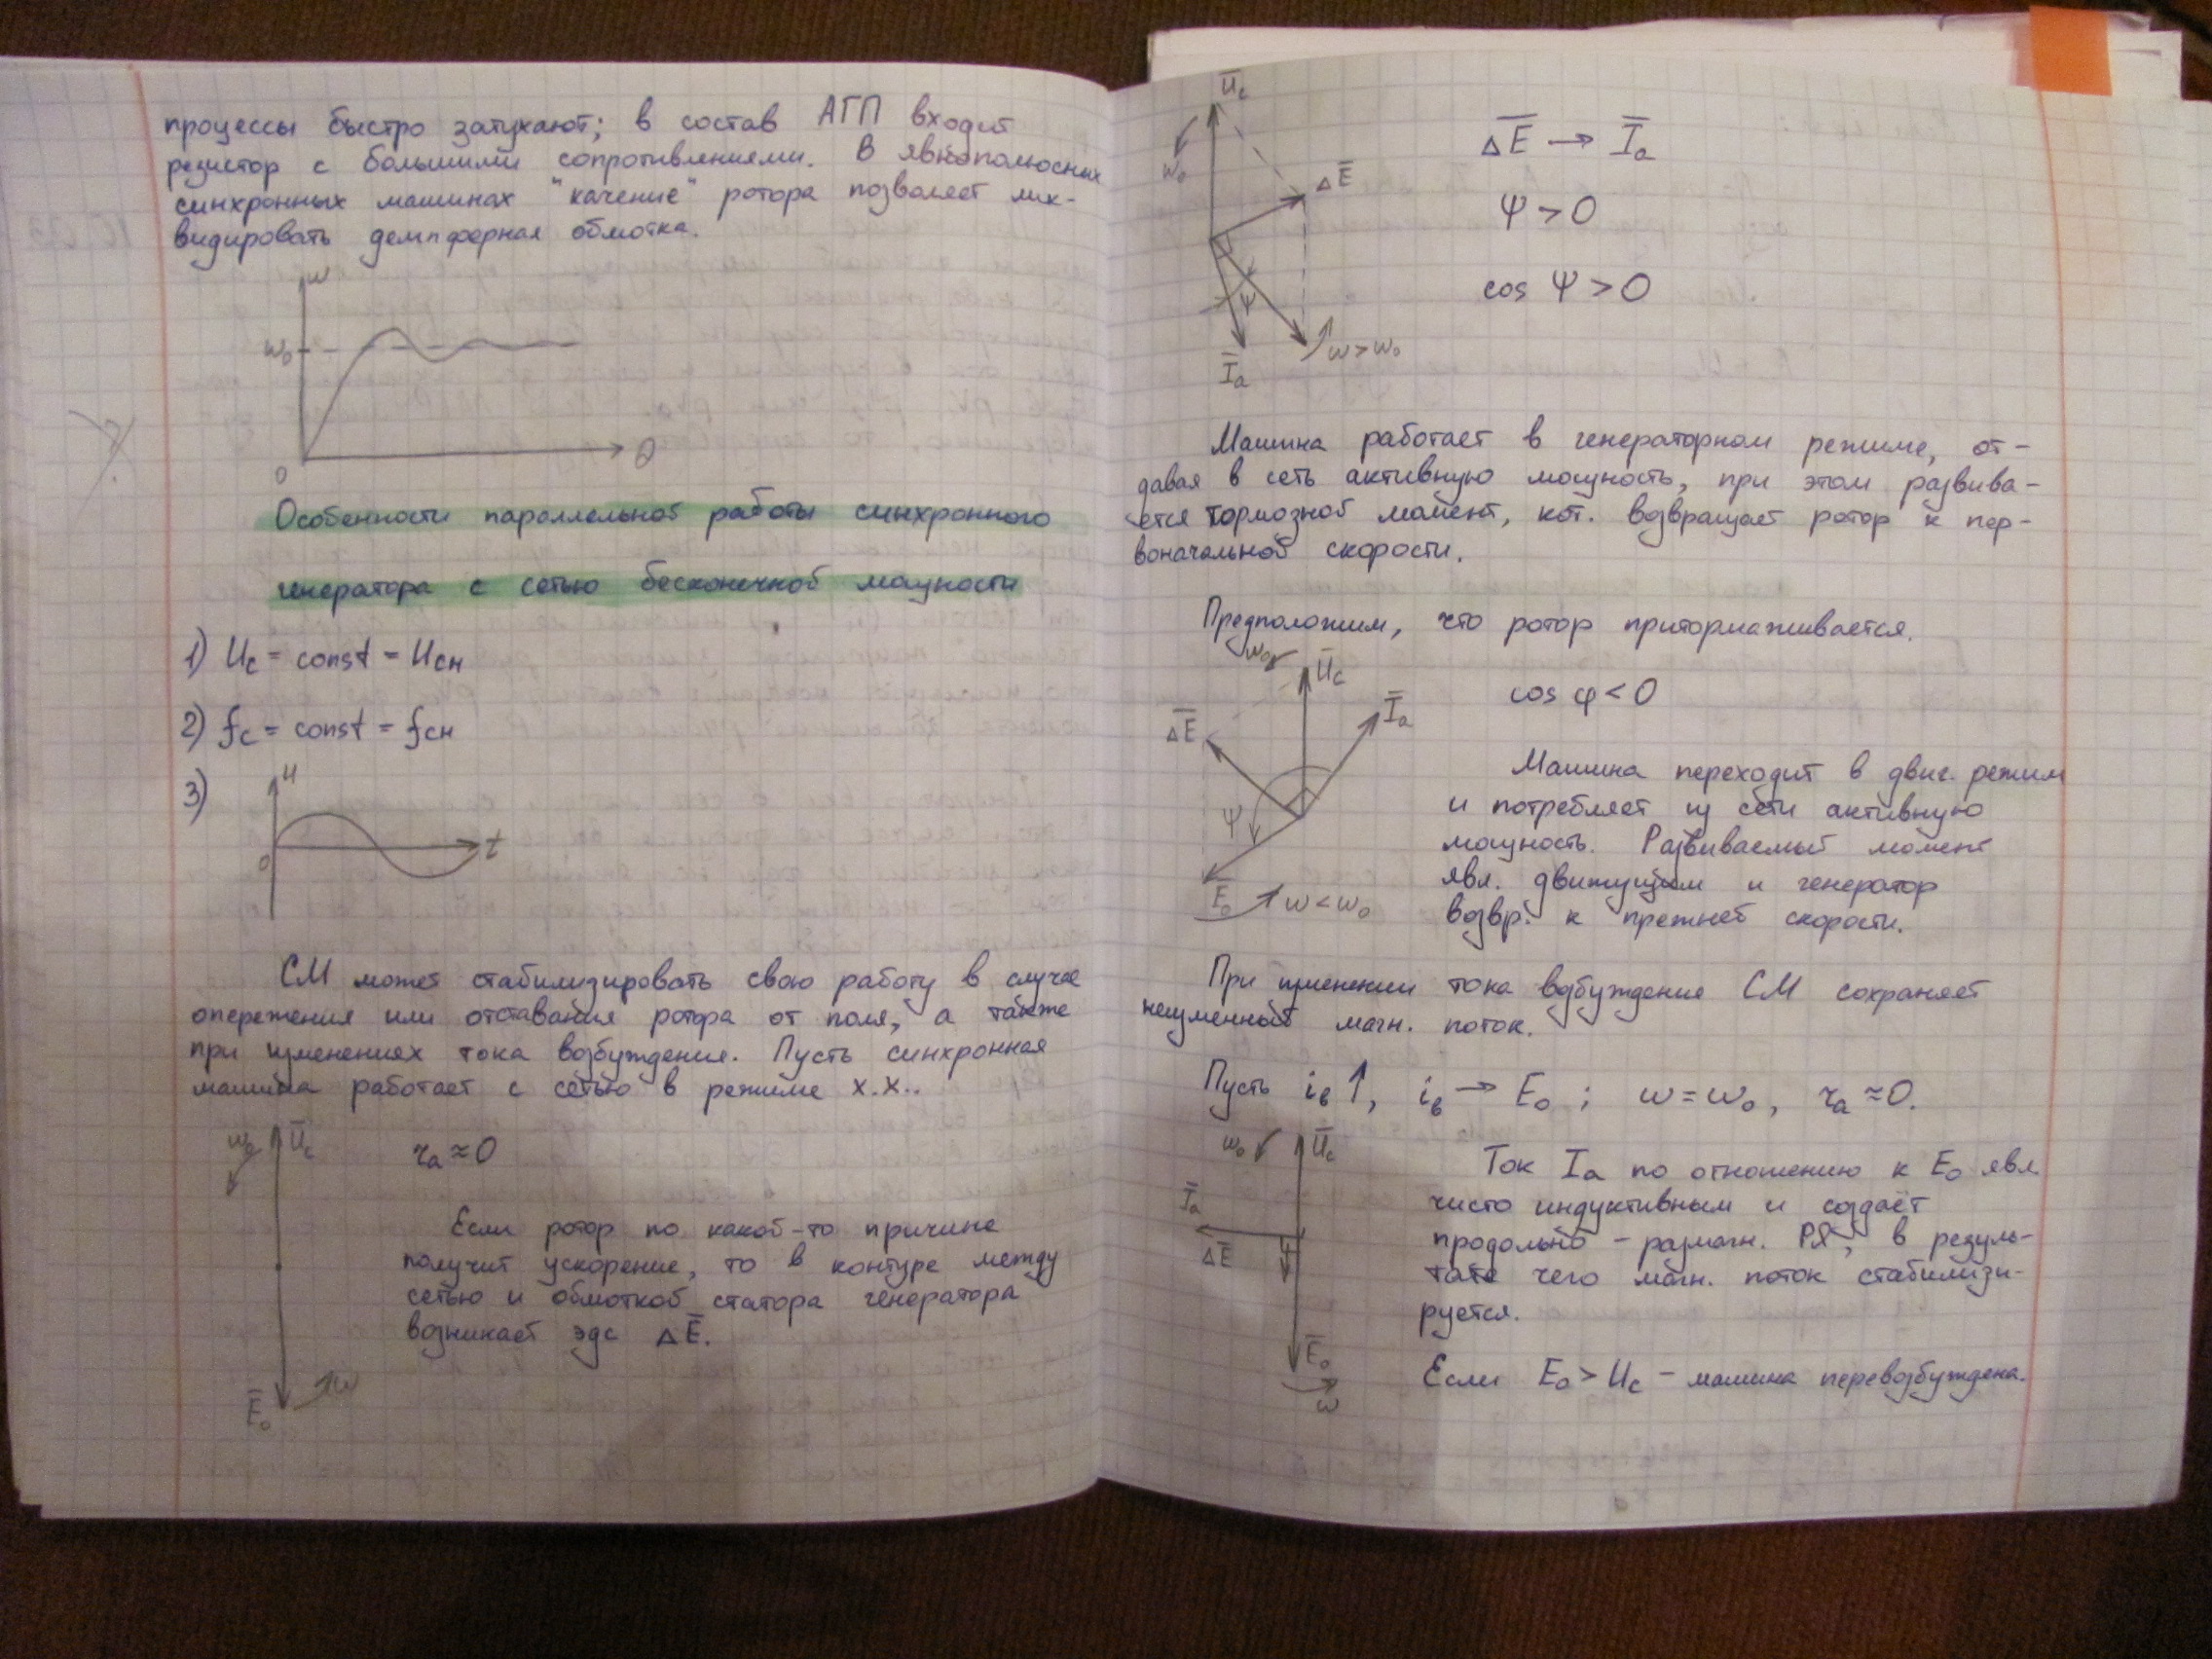 процессы быстро затухают; в состав АГП входит
резистор с большими сопротивлениями. В явнополюсных
синхронных машинах "качение" ротора позволяет лик-
видировать демпферная обмотка.
ω
ω₀
0
θ
Особенности параллельной работы синхронного
генератора с сетью бесконечной мощности
1) Uc = const = Uсн
2) fc = const = fсн
3)
u
0
t
СМ может стабилизировать свою работу в случае
опережения или отставания ротора от поля, а также
при изменениях тока возбуждения. Пусть синхронная
машина работает с сетью в режиме х.х..
ω₀ U̅c
rа ≈ 0
Если ротор по какой-то причине
получит ускорение, то в контуре между
сетью и обмоткой статора генератора
возникает эдс ΔE̅.
E̅₀ ω
U̅c
ω₀
ΔE̅
ψ
I̅a
ω > ω₀
ΔE̅ → I̅a
ψ > 0
cos ψ > 0
Машина работает в генераторном режиме, от-
давая в сеть активную мощность, при этом развива-
ется тормозной момент, кот. возвращает ротор к пер-
воначальной скорости.
Предположим, что ротор притормаживается.
ω₀ U̅c
I̅a
ΔE̅
ψ
E̅₀ ω < ω₀
cos φ < 0
Машина переходит в двиг. режим
и потребляет из сети активную
мощность. Развиваемый момент
явл. движущим и генератор
возвр. к прежней скорости.
При изменении тока возбуждение СМ сохраняет
неизменный магн. поток.
Пусть iв↑, iв → E₀ ; ω = ω₀, rа ≈ 0.
ω₀ U̅c
I̅a
ΔE̅
ψ
E̅₀
ω
Ток Iа по отношению к E₀ явл.
чисто индуктивным и создаёт
продольно - размагн. РЯ, в резуль-
тате чего магн. поток стабилизи-
руется.
Если E₀ > Uc - машина перевозбуждена.